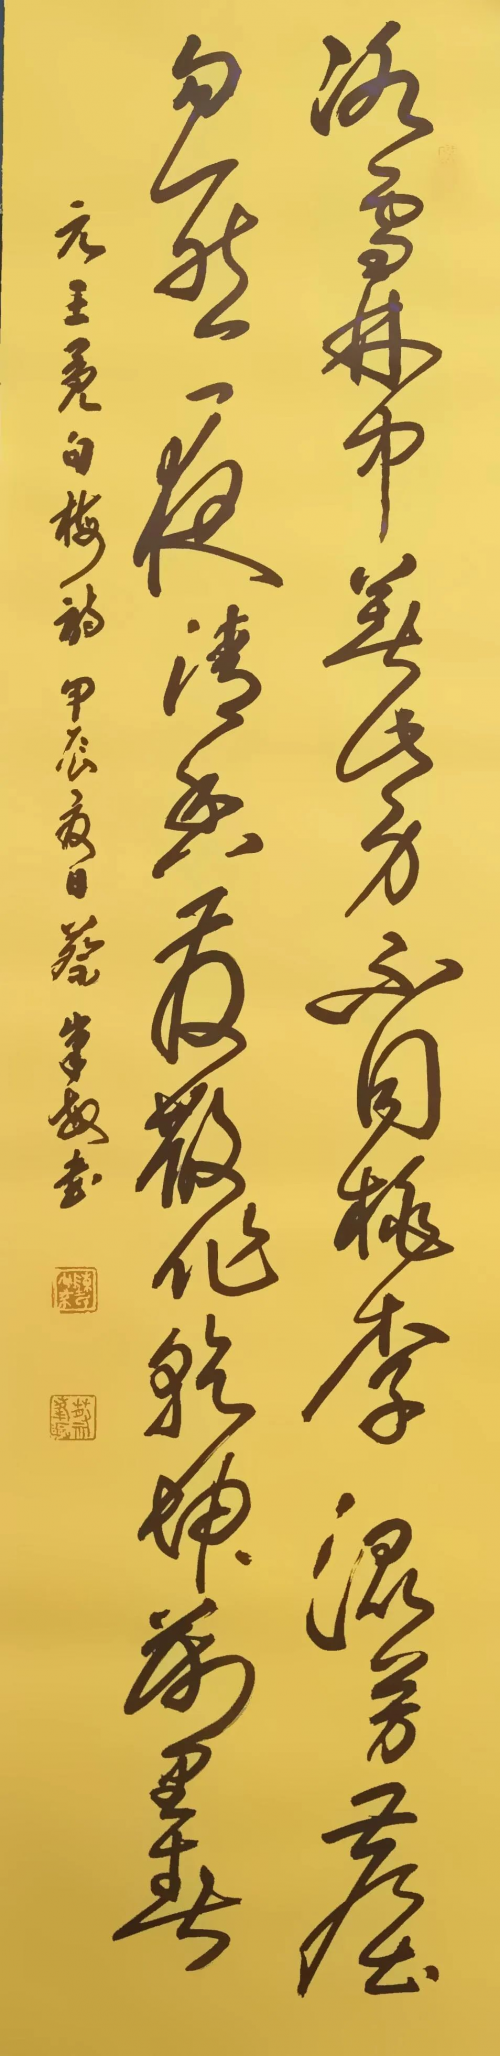 冰雪林中著此身不同桃李混芳塵
忽然一夜清香發散作乾坤萬里春
元王冕白梅詩甲辰夏日蔡敏書